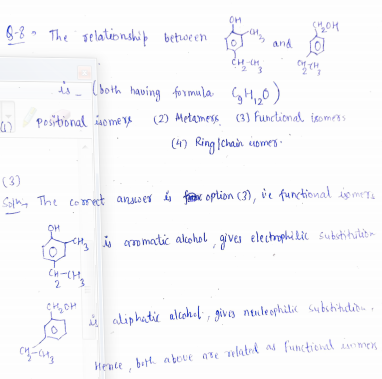 Q-8 → The relationship between
OH
CH3
CH2-CH3
and
CH2OH
CH2CH3
is - (both having formula C9H12O)
(1) positional isomers (2) Metamers (3) Functional isomers
(4) Ring/chain isomer.
(3)
Soln → The correct answer is option (3), i.e functional isomers
OH
CH3
CH2-CH3
is aromatic alcohol, gives electrophilic substitution
CH2OH
CH2-CH3
is aliphatic alcohol, gives nucleophilic substitution.
Hence, both above are related as functional isomers